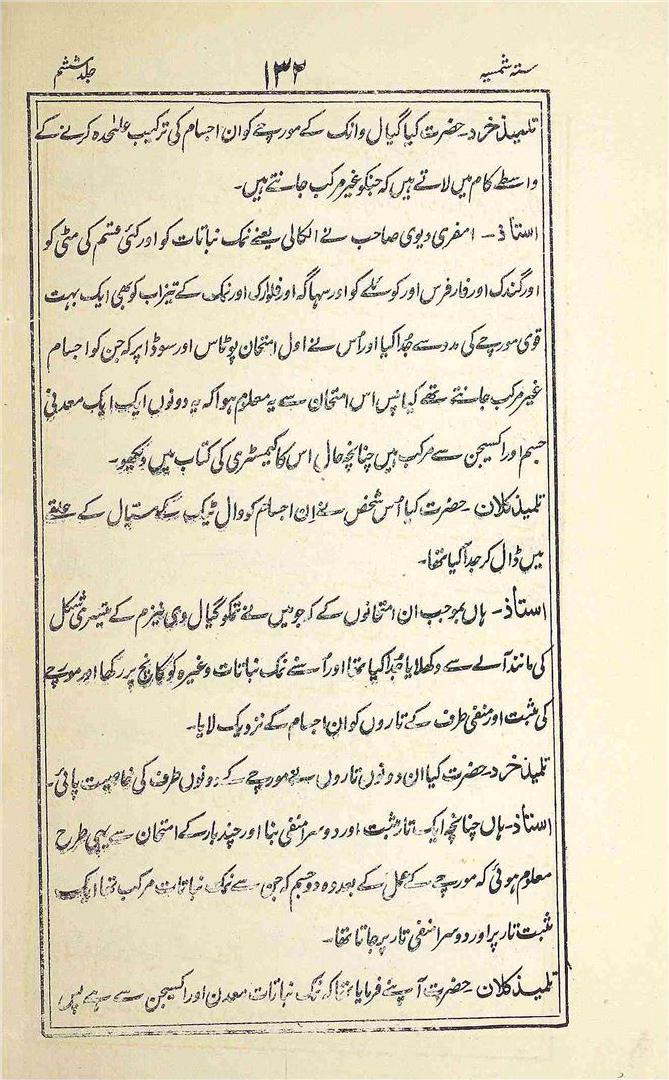 ستہ شمسیہ ۱۳۲ جلد ششم
تلمیذ خرد۔ حضرت کیا گیال وانک کے مورچے کو ان اجسام کی ترکیب علٰحدہ کرنے کے
واسطے کام میں لاتے ہیں کہ جنکو غیر مرکب جانتے ہیں۔
استاذ۔ امفری دیوی صاحب نے الکالی یعنے نمک نباتات کو اور کئی قسم کی مٹی کو
اور گندک اور فارفرس اور کوئلے کو اور سہاگہ اور فلوارکی اور نمکی کے تیزاب کو بھی ایک بہت
قوی مورچے کی مدد سے جُدا کیا اور اُس نے اول امتحان پوٹاس اور سوڈا پر کہ جن کو اجسام
غیر مرکب جانتے تھے کیا پس اس امتحان سے یہ معلوم ہوا کہ یہ دونوں ایک ایک معدنی
جسم اور اکسیجن سے مرکب ہیں چنانچہ حال اس کا کیمسٹری کی کتاب میں دیکھو۔
تلمیذ کلان۔ حضرت کیا اُس شخص نے اِن اجسام کو وال ٹیک کے ستپال کے حلقے
میں ڈال کر جدا کیا تھا۔
استاذ۔ ہاں بموجب ان امتحانوں کے کہ جو میں نے تمکو گیال وی نیزم کے تیسری شکل
کی مانند آلے سے دکھلایا جُدا کیا تھا اور اُسنے نمک نباتات وغیرہ کو کانچ پر رکھا اور مورچے
کی مثبت اور منفی طرف کے تاروں کو ان اجسام کے نزدیک لایا۔
تلمیذ خرد۔ حضرت کیا ان دونوں تاروں نے مورچے کے دونوں طرف کی خاصیت پائی۔
استاذ۔ ہاں چنانچہ ایک تار مثبت اور دوسرا منفی بنا اور چند بار کے امتحان سے یہی طرح
معلوم ہوئی کہ مورچے کے عمل کے بعد وہ دو جسم کہ جن سے نمک نباتات مرکب تھا ایک
مثبت تار پر اور دوسرا منفی تار پر جاتا تھا۔
تلمیذ کلان۔ حضرت آپنے فرمایا تھا کہ نمک نباتات معدن اور اکسیجن سے ہے پس